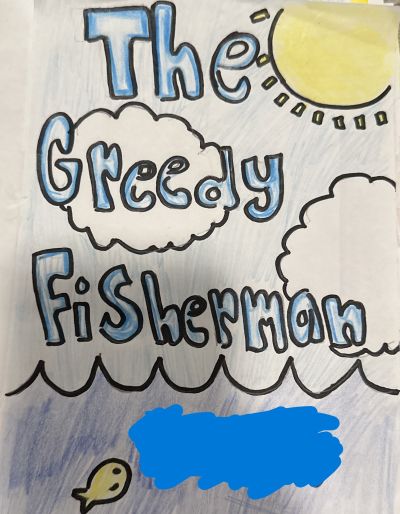 The
Greedy
Fisherman